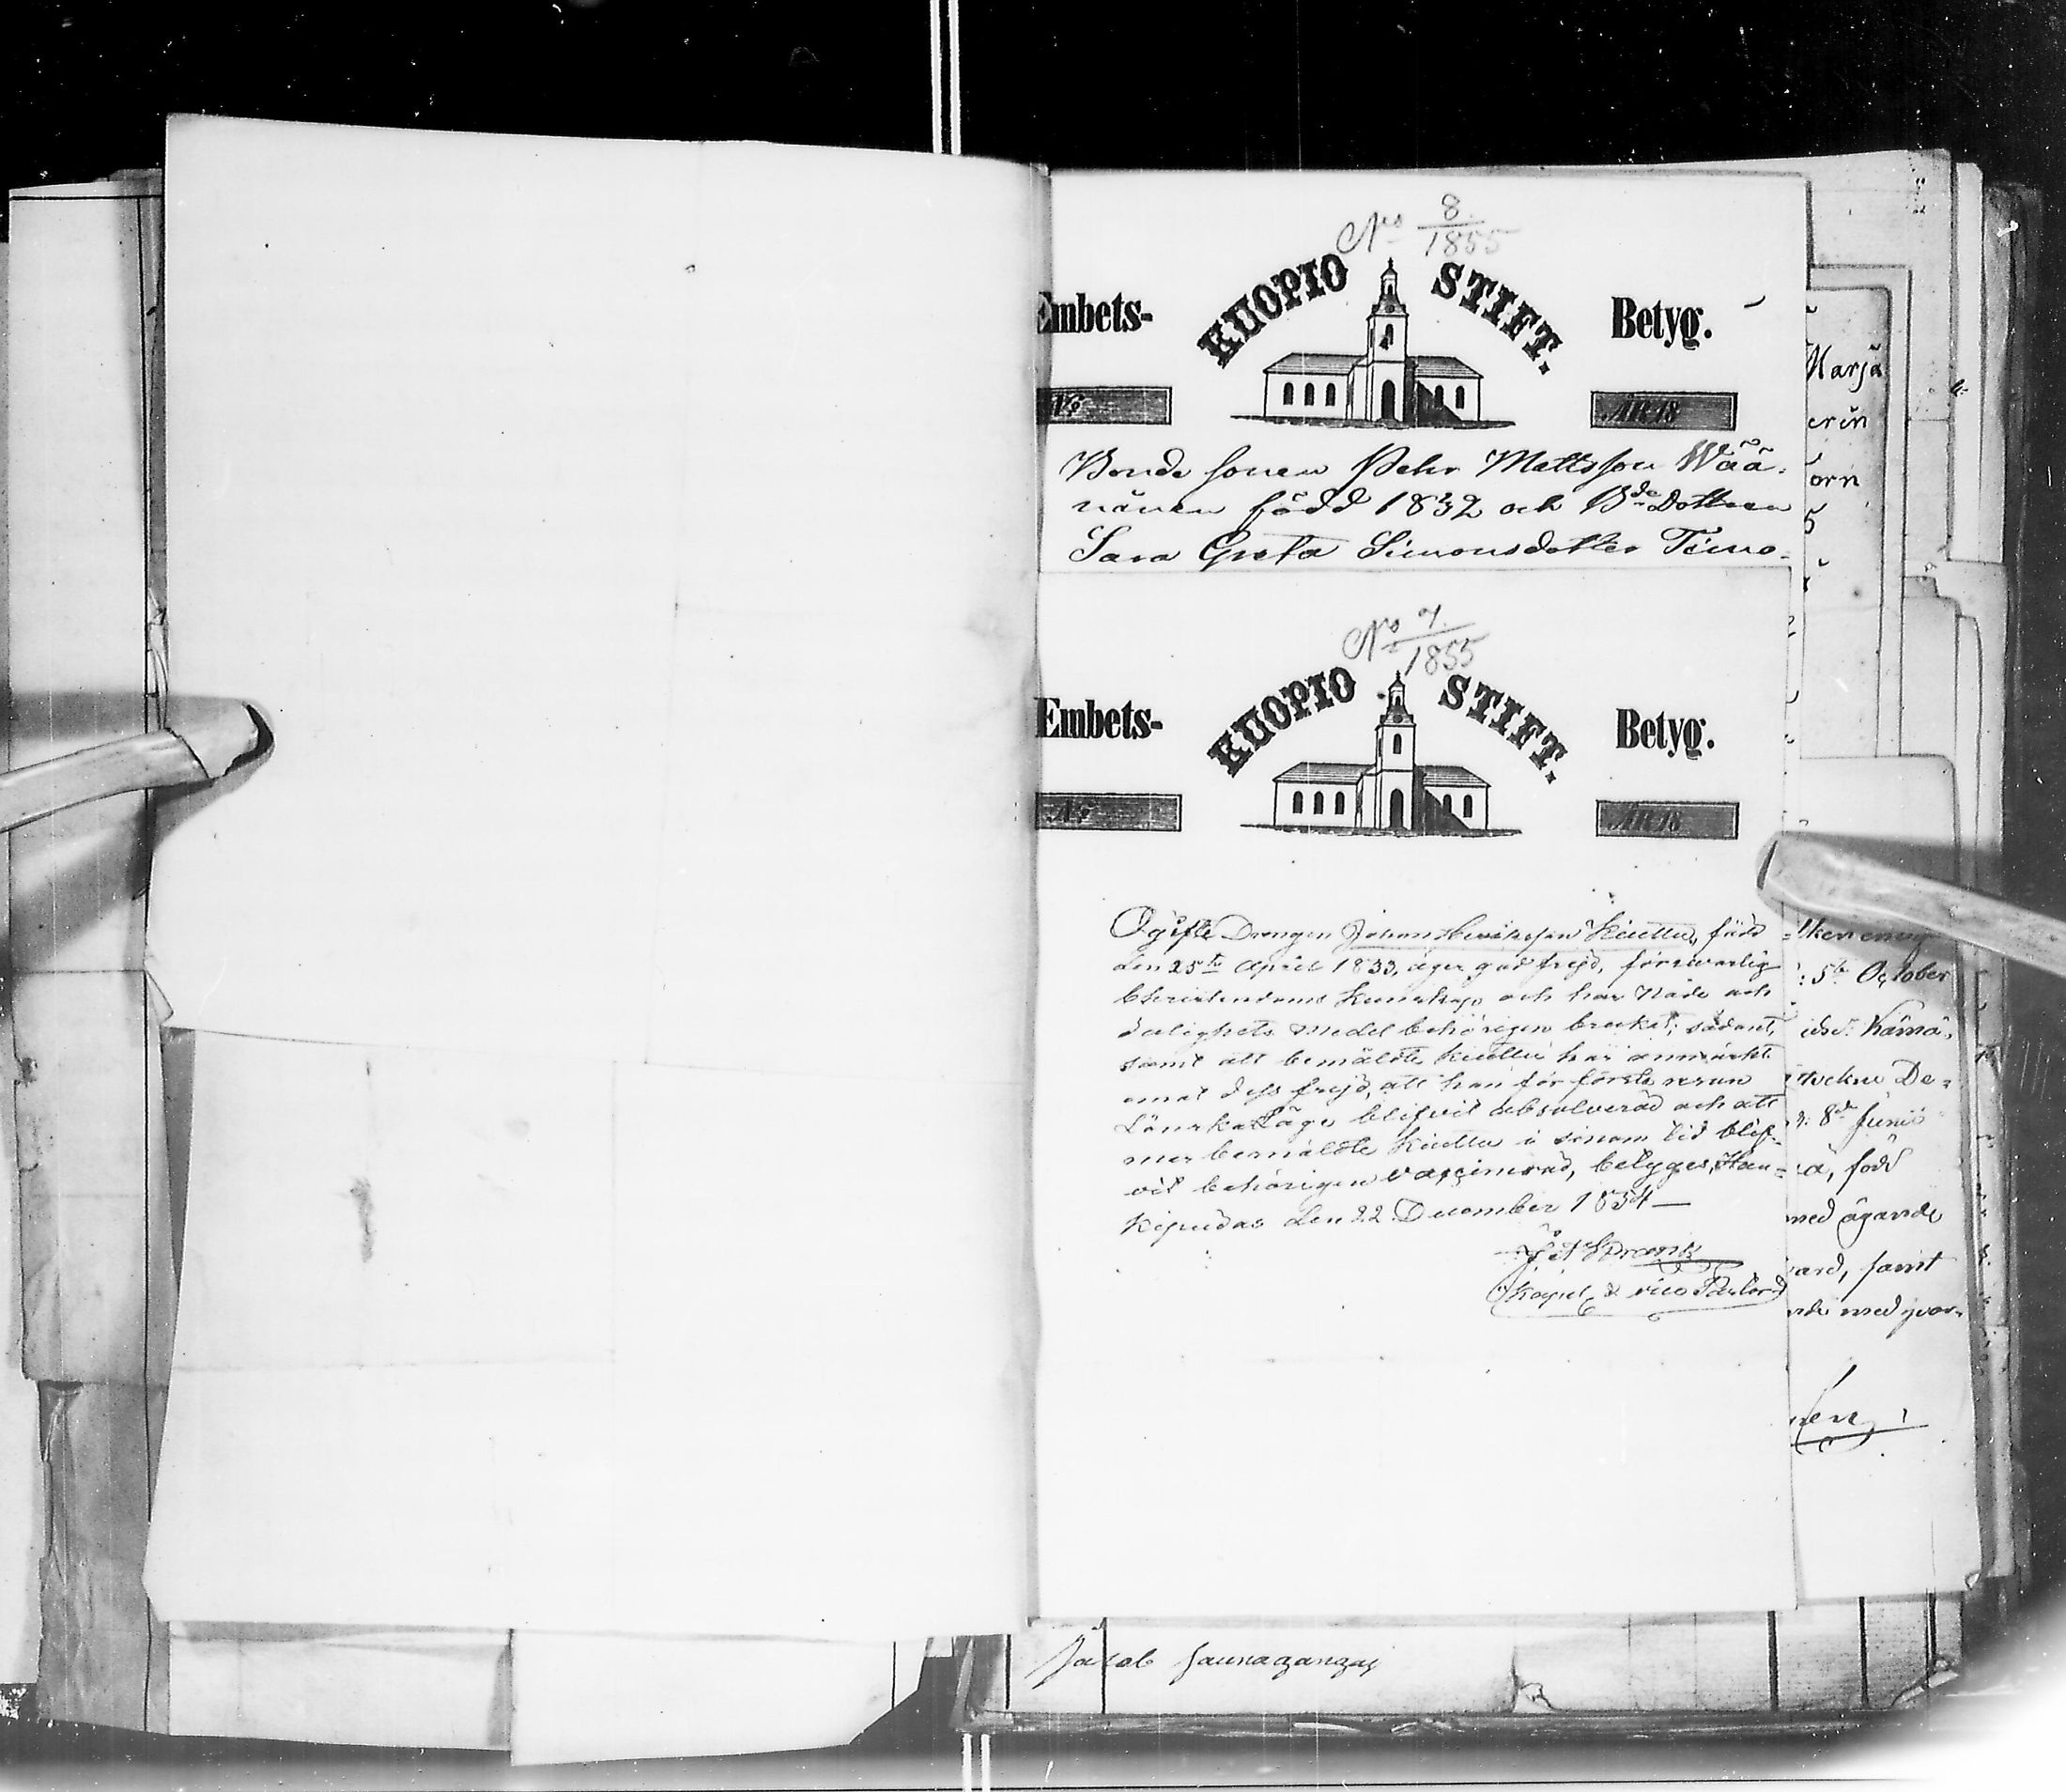 No 8/1855
Embets- KUOPIO STIFT. Betyg.
No ÅR 18
Bonde sonen Pehr Mattsson Wää-
nänen född 1832 och Bde Dottren
Sara Greta Simonsdotter Timo-
No 7/1855
Embets- KUOPIO STIFT. Betyg.
No ÅR 18
Ogifte Drengen Johan Henriksson Kiuttu, född
den 25te April 1833, äger god frejd, försvarlig
Christendoms kunskap och har Nåde och
Salighets medel behörigen brukat; sådant,
samt att bemäldte Kiuttu har anmärkt
emot dess frejd, att han för första resan
Lönskaläge blifvit absolverad och att
mer bemäldte Kiuttu i sinom tid blif-
vit behörigen vaccinerad, betygar, Hau-
kipudas den 22 December 1854
Kapel. & vice Pastor
Marjä
erin
orn
5te October
Kämä-
De-
8de Junii
född
med ägande
samt
med
Jacob Saunagangas